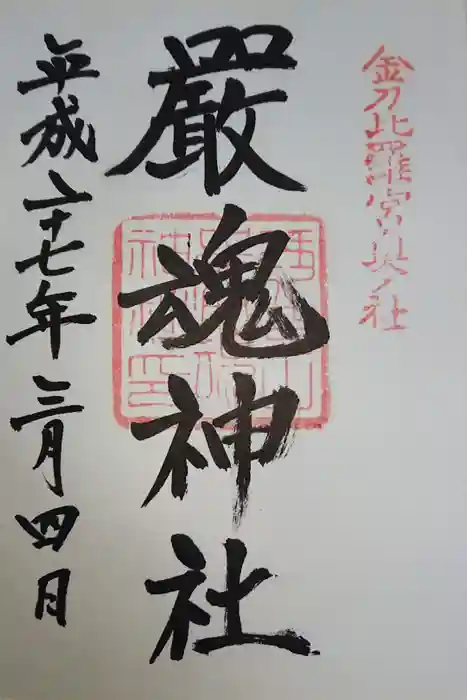 金刀比羅宮奥ノ社
嚴魂神社
平成二十七年三月四日